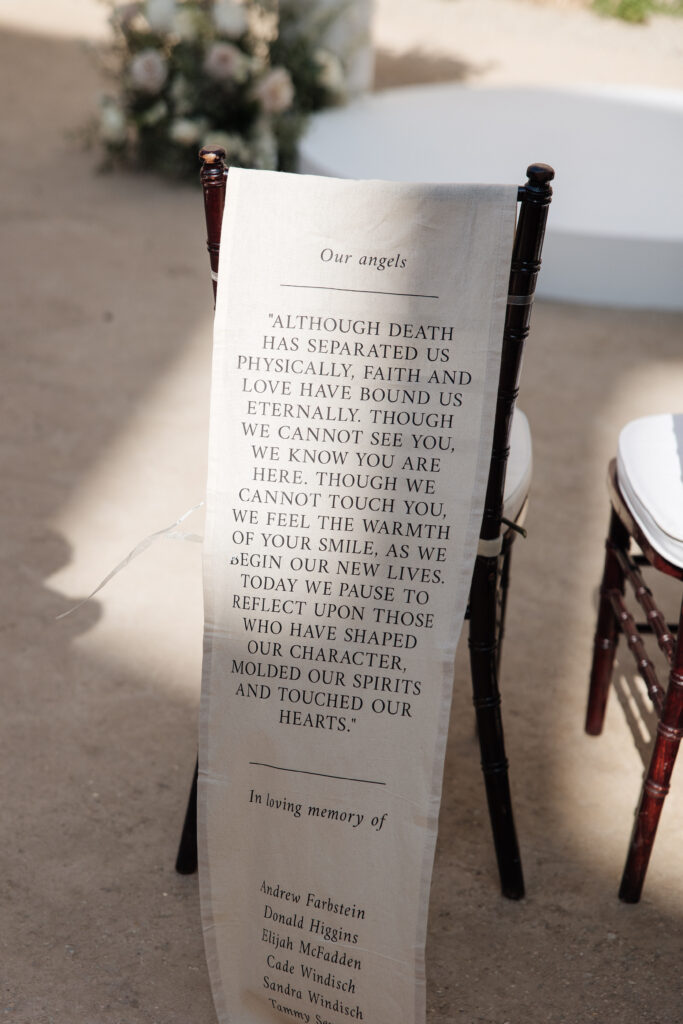 Our angels
"ALTHOUGH DEATH
HAS SEPARATED US
PHYSICALLY, FAITH AND
LOVE HAVE BOUND US
ETERNALLY. THOUGH
WE CANNOT SEE YOU,
WE KNOW YOU ARE
HERE. THOUGH WE
CANNOT TOUCH YOU,
WE FEEL THE WARMTH
OF YOUR SMILE, AS WE
BEGIN OUR NEW LIVES.
TODAY WE PAUSE TO
REFLECT UPON THOSE
WHO HAVE SHAPED
OUR CHARACTER,
MOLDED OUR SPIRITS
AND TOUCHED OUR
HEARTS."
In loving memory of
Andrew Farbstein
Donald Higgins
Elijah McFadden
Cade Windisch
Sandra Windisch
Tammy